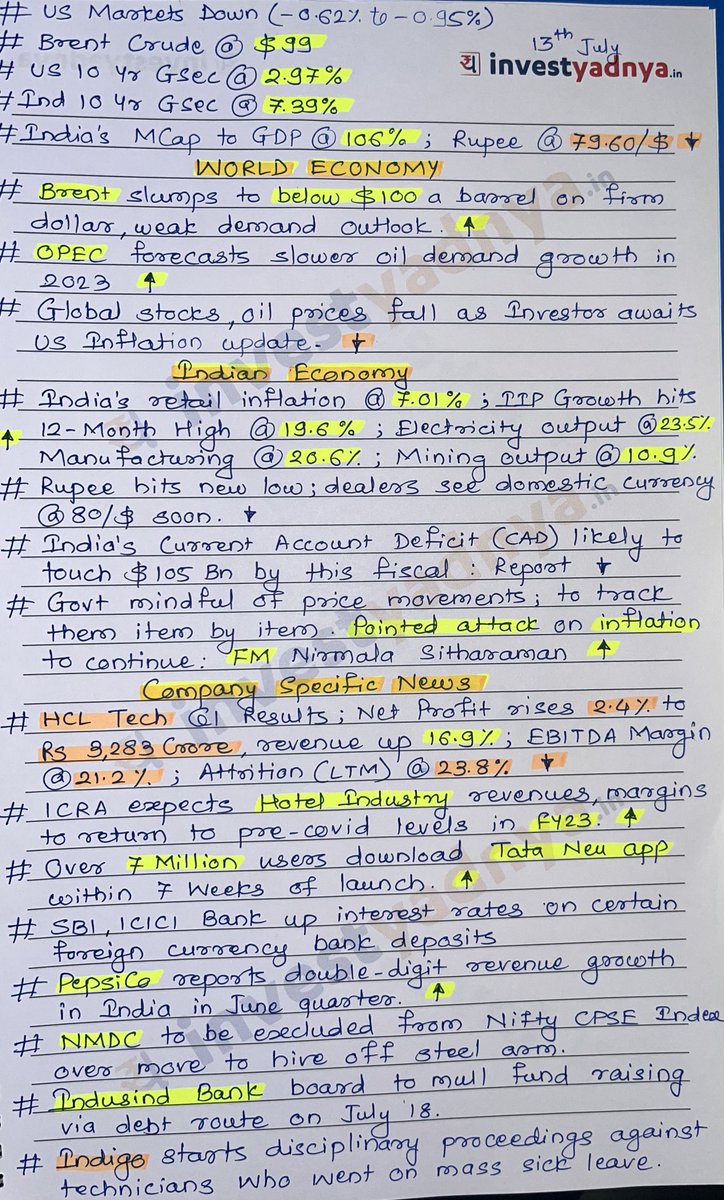 # US Markets Down (-0.62% to -0.95%)
13th July
# Brent Crude @ $99
investyadnya.in
# US 10 yr Gsec @ 2.97%
# Ind 10 yr Gsec @ 7.39%
# India's MCap to GDP @ 106% ; Rupee @ 79.60/$ ↓
WORLD ECONOMY
# Brent slumps to below $100 a barrel on firm
dollar, weak demand outlook. ↑
# OPEC forecasts slower oil demand growth in
2023 ↑
# Global stocks, oil prices fall as Investor awaits
US Inflation update- ↓
Indian Economy
# India's retail inflation @ 7.01% ; IIP Growth hits
↑ 12-Month High @ 19.6% ; Electricity output @ 23.5%
Manufacturing @ 20.6% ; Mining output @ 10.9%
# Rupee hits new low; dealers see domestic currency
@ 80/$ soon. ↓
# India's Current Account Deficit (CAD) likely to
touch $105 Bn by this fiscal : Report ↓
# Govt mindful of price movements; to track
them item by item. Pointed attack on inflation
to continue: FM Nirmala Sitharaman ↑
Company Specific News
# HCL Tech Q1 Results; Net Profit rises 2.4% to
Rs 3,283 Crore, revenue up 16.9% ; EBITDA Margin
@ 21.2% ; Attrition (LTM) @ 23.8% ↓
# ICRA expects Hotel Industry revenues, margins
to return to pre-covid levels in FY23. ↑
# Over 7 Million users download Tata Neu app
within 7 Weeks of launch. ↑
# SBI, ICICI Bank up interest rates on certain
foreign currency bank deposits
# PepsiCo reports double-digit revenue growth
in India in June quarter. ↑
# NMDC to be excluded from Nifty CPSE Index
over move to hive off steel arm.
# Indusind Bank board to mull fund raising
via debt route on July 18.
# Indigo starts disciplinary proceedings against
technicians who went on mass sick leave.